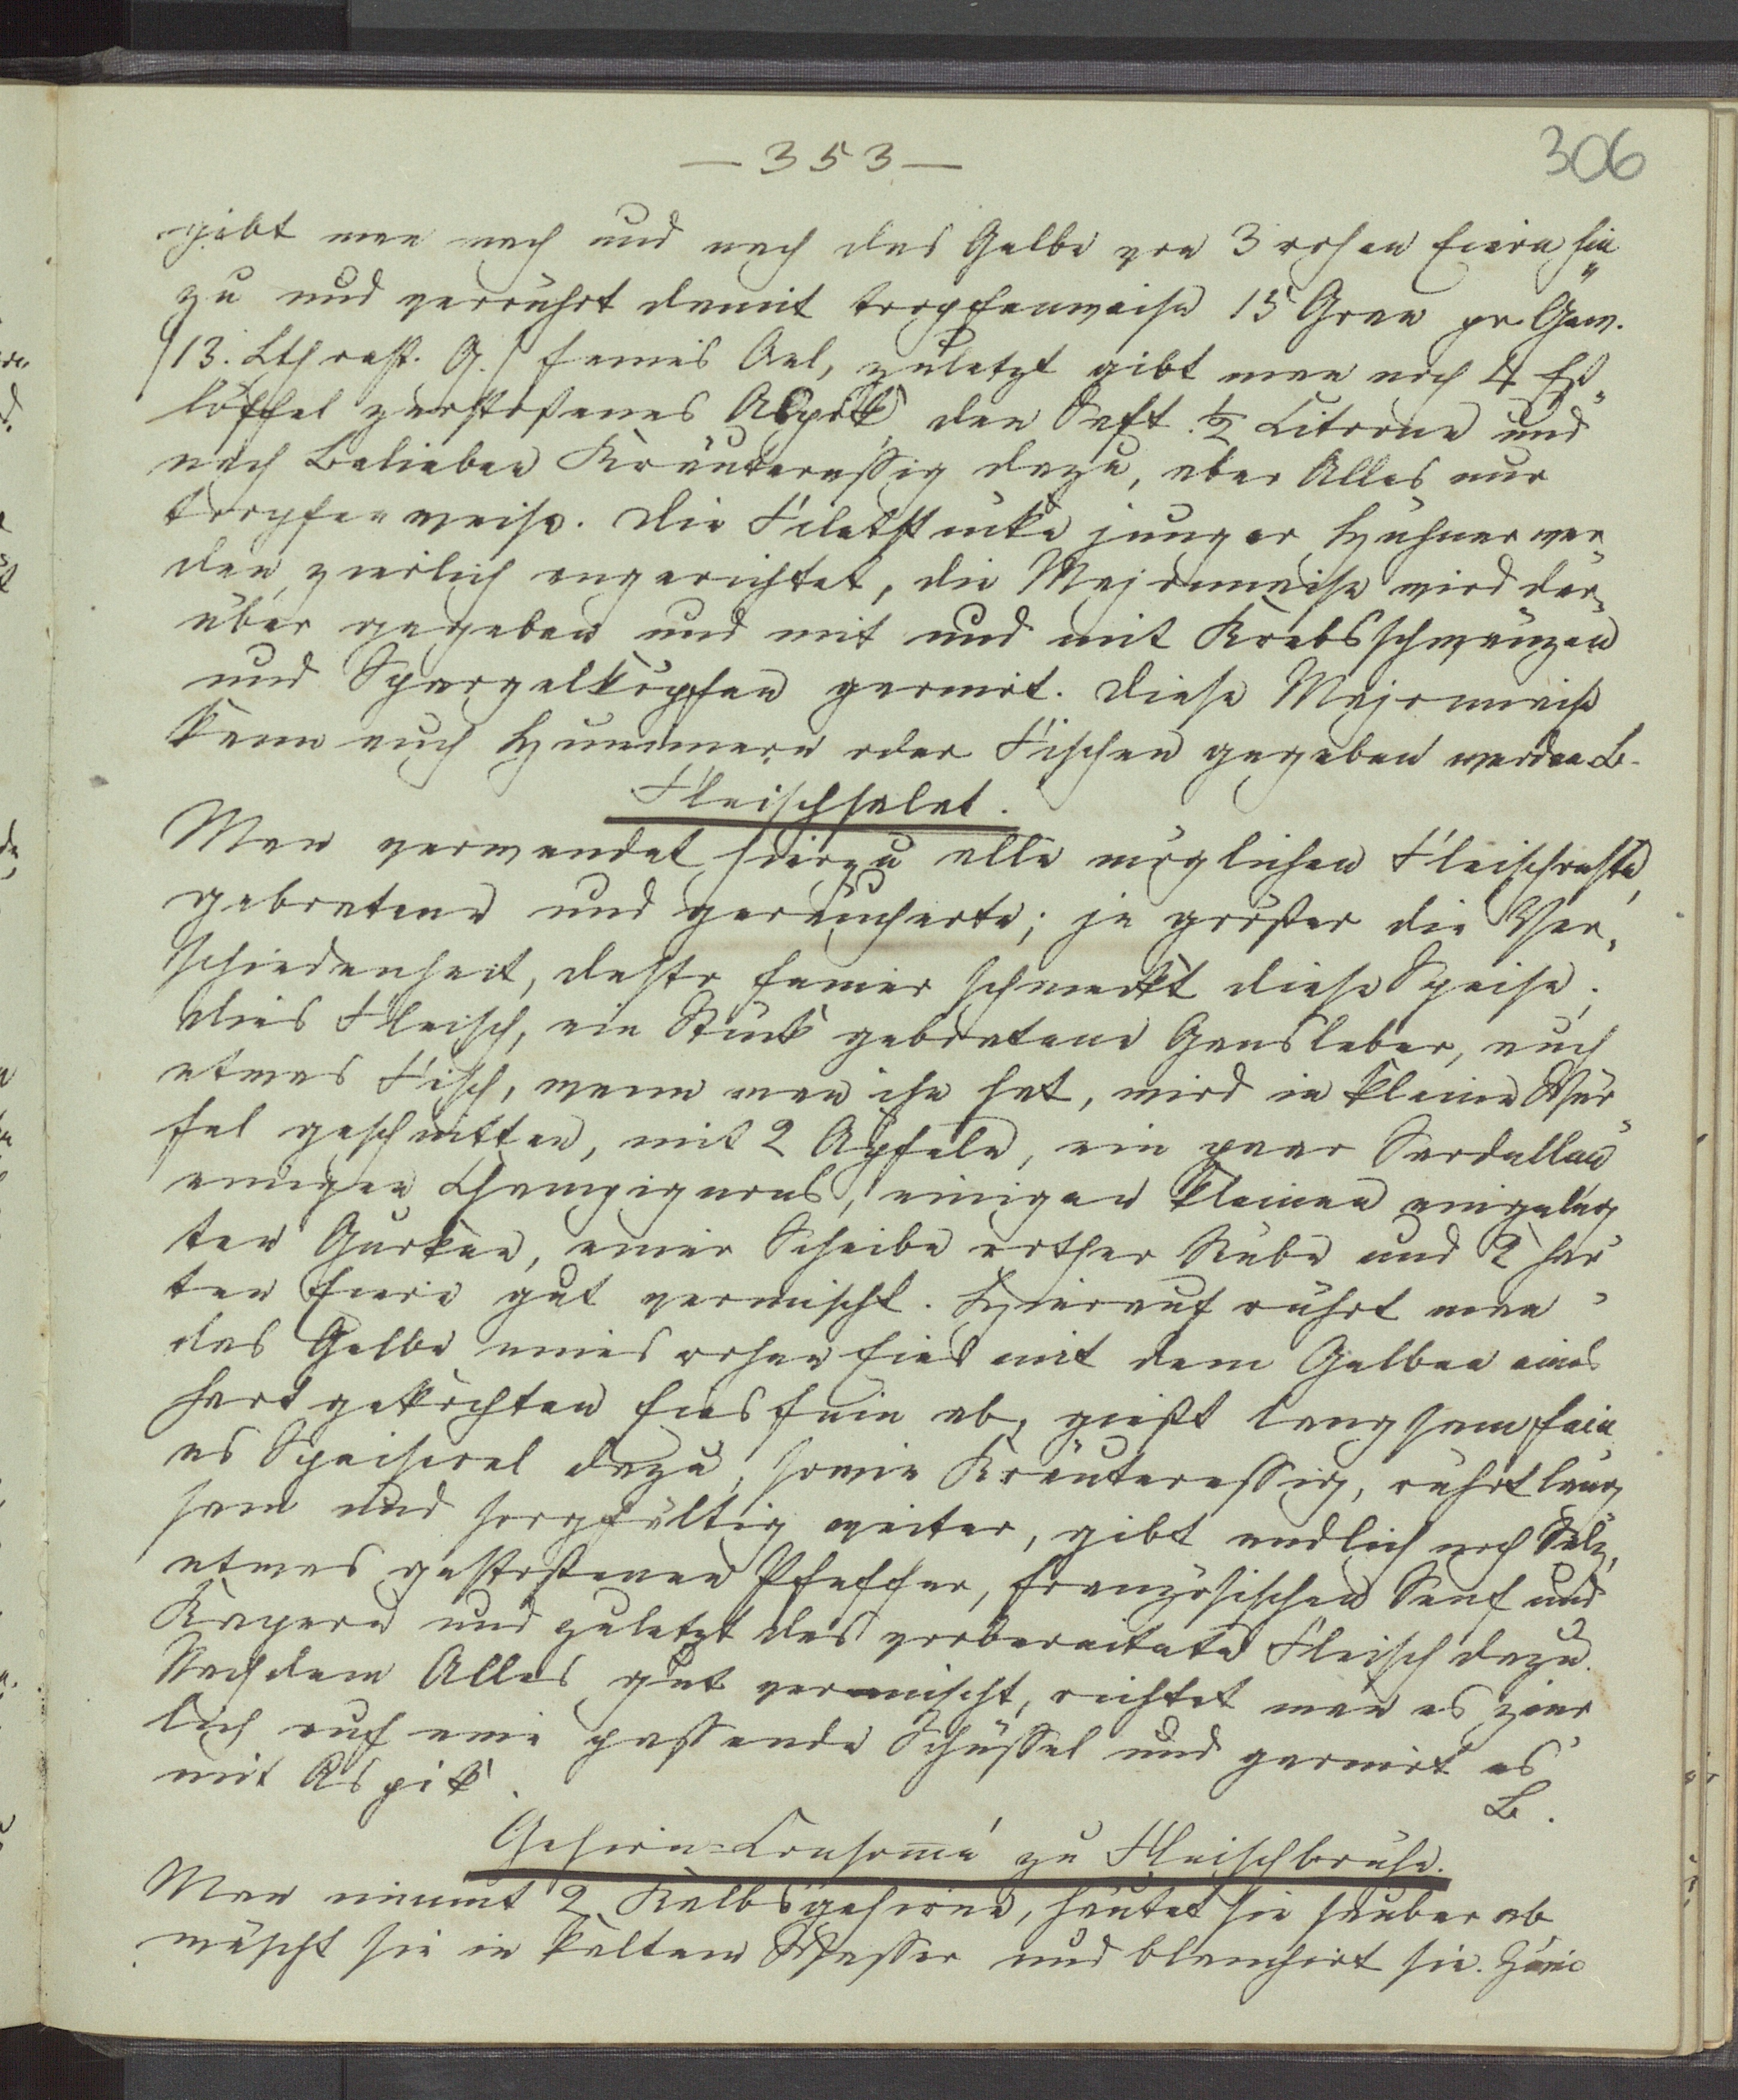 — 353 —
306
gibt man nach und nach das Gelbe von 3 rohen Eiern hin„
zu und verrührt damit tropfenweise 15 Gran pr. Gew.
(13. Lth rest. G.) feines Oel, zuletzt gibt man noch 4 Eß„
löffel zerstoßenes Aspik den Saft ½ Citrone und
nach Belieben Kräuteressig dazu, aber Alles nur
tropfenweise. Die Filetstücke junger Hühner wer„
den zierlich angerichtet, die Majonnaise wird dar„
über gegeben und mit und mit Krebsschwänzen
und Spargelköpfen garnirt. Diese Majonnaise
kann auch Hummern oder Fischen gegeben werden B.
Fleischsalat.
Man verwendet hierzu alle möglichen Fleischreste,
gebratene und geräucherte; je größer die Ver„
schiedenheit, desto feiner schmeckt diese Speise;
dies Fleisch, ein Stück gebratene Gansleber, auch
etwas Fisch, wenn man ihn hat, wird in kleine Wür„
fel geschnitten, mit 2 Apfeln, ein paar Sardellen
einigen Champignons, einigen kleinen eingeleg
ten Gurken, einer Scheibe rother Rübe und 2 har„
ten Eiern gut vermischt. Hierauf rührt man
das Gelbe eines rohen Eies mit dem Gelben eines
hart gekochten Eies fein ab, gießt langsam fein
es Speiseoel dazu, sowie Kräuteressig, rührt lang
sam und sorgfältig weiter, gibt endlich noch Salz,
etwas gestoßenen Pfeffer, französischen Senf und
Kapern und zuletzt das vorbereitete Fleisch dazu.
Nachdem Alles gut vermischt, richtet man es zier„
lich auf eine passende Schüssel und garnirt es
mit Aspik.
B.
Gehirn=Consomé zu Fleischbrühe.
Man nimmt 2 Kalbsgehirne, häutet sie sauber ab
wäscht sie in kaltem Wasser und blanchirt sie.